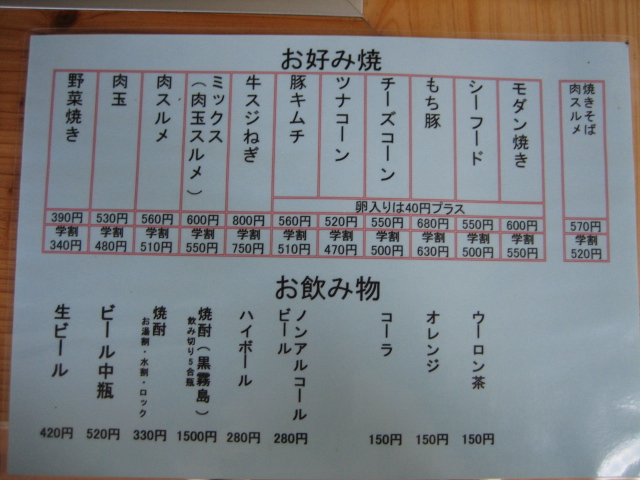 お好み焼
焼きそば
肉スルメ
570円
学割
520円
モダン焼き
600円
学割
550円
シーフード
550円
学割
500円
もち豚
680円
学割
630円
チーズコーン
550円
学割
500円
ツナコーン
520円
学割
470円
豚キムチ
560円
学割
510円
卵入りは40円プラス
牛スジねぎ
800円
学割
750円
ミックス
(肉玉スルメ)
600円
学割
550円
肉スルメ
560円
学割
510円
肉玉
530円
学割
480円
野菜焼き
390円
学割
340円
お飲み物
ウーロン茶
150円
オレンジ
150円
コーラ
150円
ノンアルコール
ビール
280円
ハイボール
280円
焼酎(黒霧島)
飲み切り5合瓶
1500円
焼酎
お湯割・水割・ロック
330円
ビール中瓶
520円
生ビール
420円